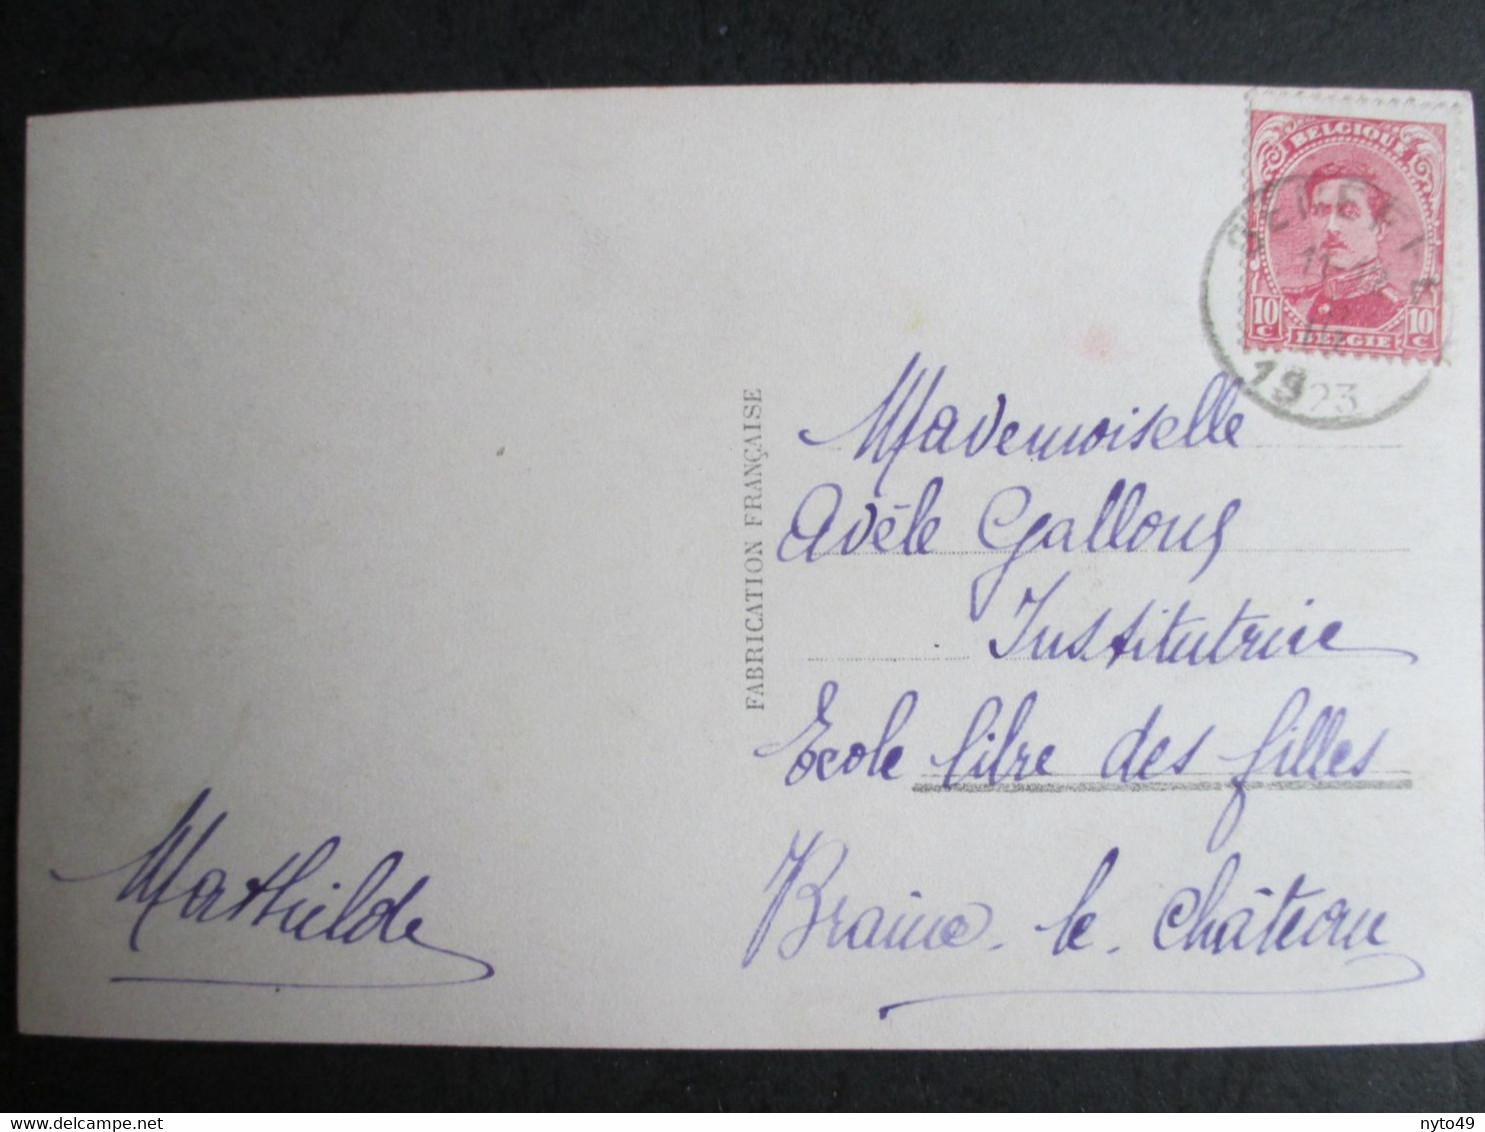 BELGIQUE
SENEFFE
10 C
10 C
BELGIE
1923
FABRICATION FRANÇAISE
Mademoiselle
Adèle Gallous
Institutrice
Ecole libre des filles
Braine-le-Château
Mathilde
delcampe.net
nyto49